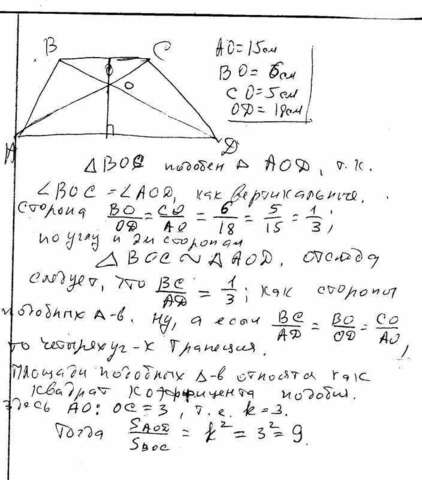 B C
O
A D
AO = 15см
BO = 6см
CO = 5см
OD = 18см
△BOC подобен △ AOD, т.к.
∠BOC = ∠AOD, как вертикальные.
сторона BO/OD = CO/AO = 6/18 = 5/15 = 1/3;
по углу и 2м сторонам
△ BOC ~ △ AOD. отсюда
следует, что BC/AD = 1/3; как стороны
подобных △-в. Ну, а если BC/AD = BO/OD = CO/AO,
то четырехуг-к трапеция.
Площади подобных △-в относятся как
квадрат коэффицента подобия.
Здесь AO : OC = 3, т.е. k = 3.
Тогда S AOD / S BOC = k² = 3² = 9